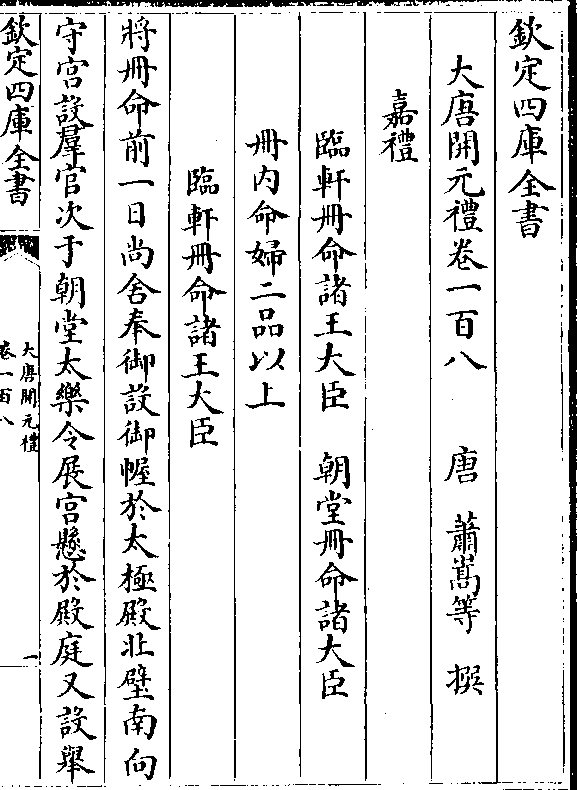 欽定四庫全書
大唐開元禮卷一百八　　唐　蕭嵩等　撰
嘉禮
臨軒冊命諸王大臣　朝堂冊命諸大臣
冊内命婦二品以上
臨軒冊命諸王大臣
將冊命前一日尚舍奉御設御幄於太極殿北壁南向
守宫設羣官次于朝堂太樂令展宫懸於殿庭又設舉
欽定四庫全書
大唐開元禮
卷一百八
一